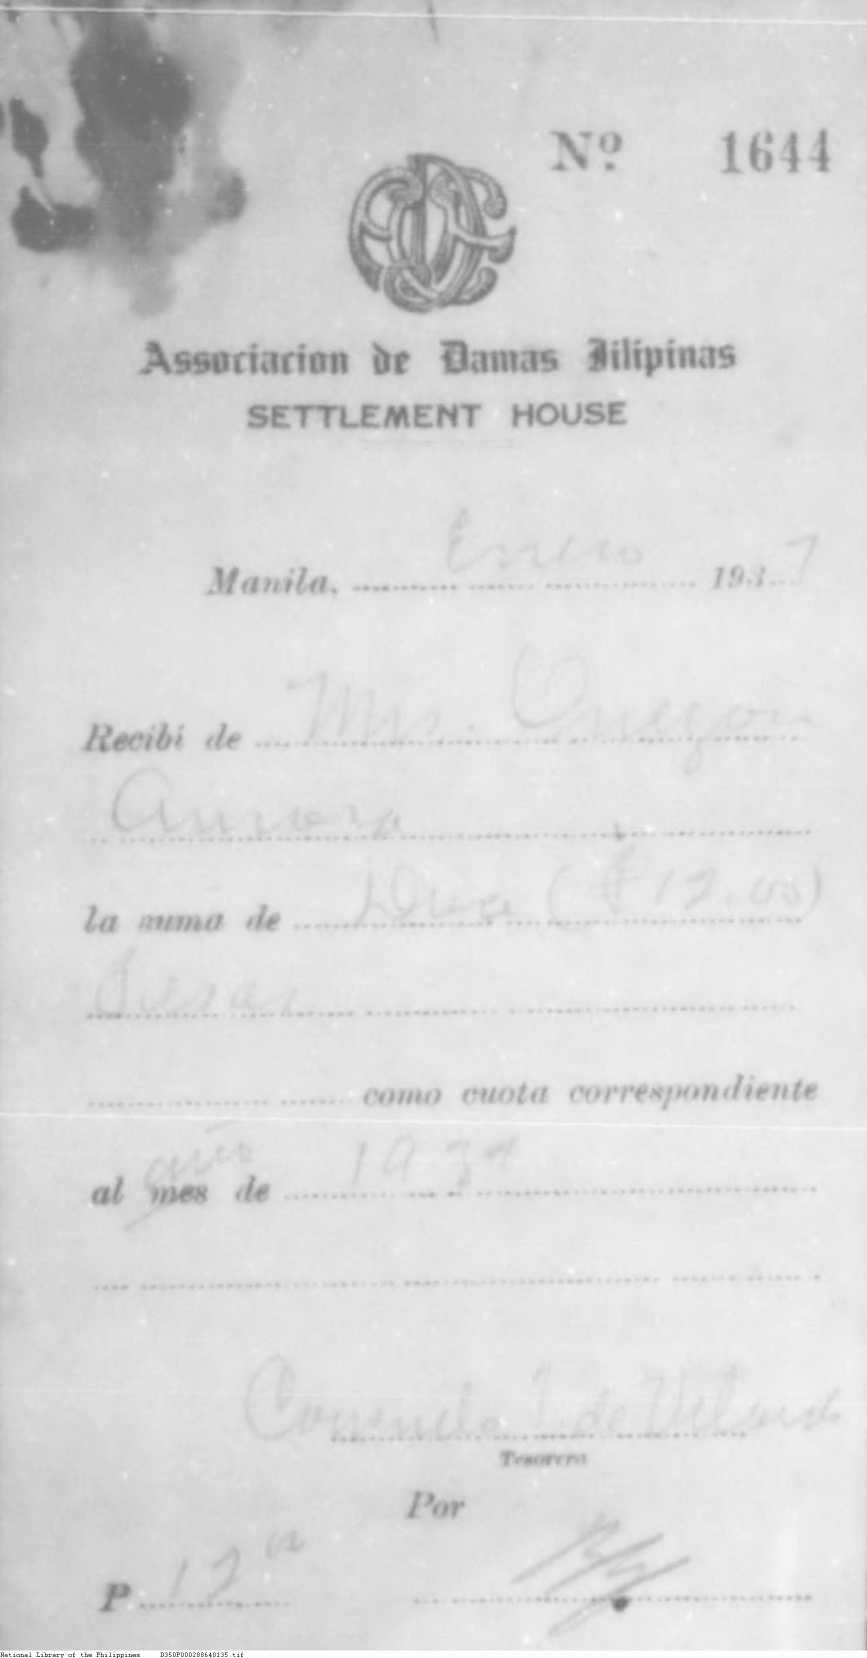 Nº 1644
Associacion de Damas Filipinas
SETTLEMENT HOUSE
Manila, Enero 1937
Recibi de Mrs. Quezon
Aurora
la suma de Doce (₱ 12.00)
Pesos
como cuota correspondiente
año
al mes de 1937
de
Tesorera
Por
P 12
National Library of the Philippines D350P000288640135.tif